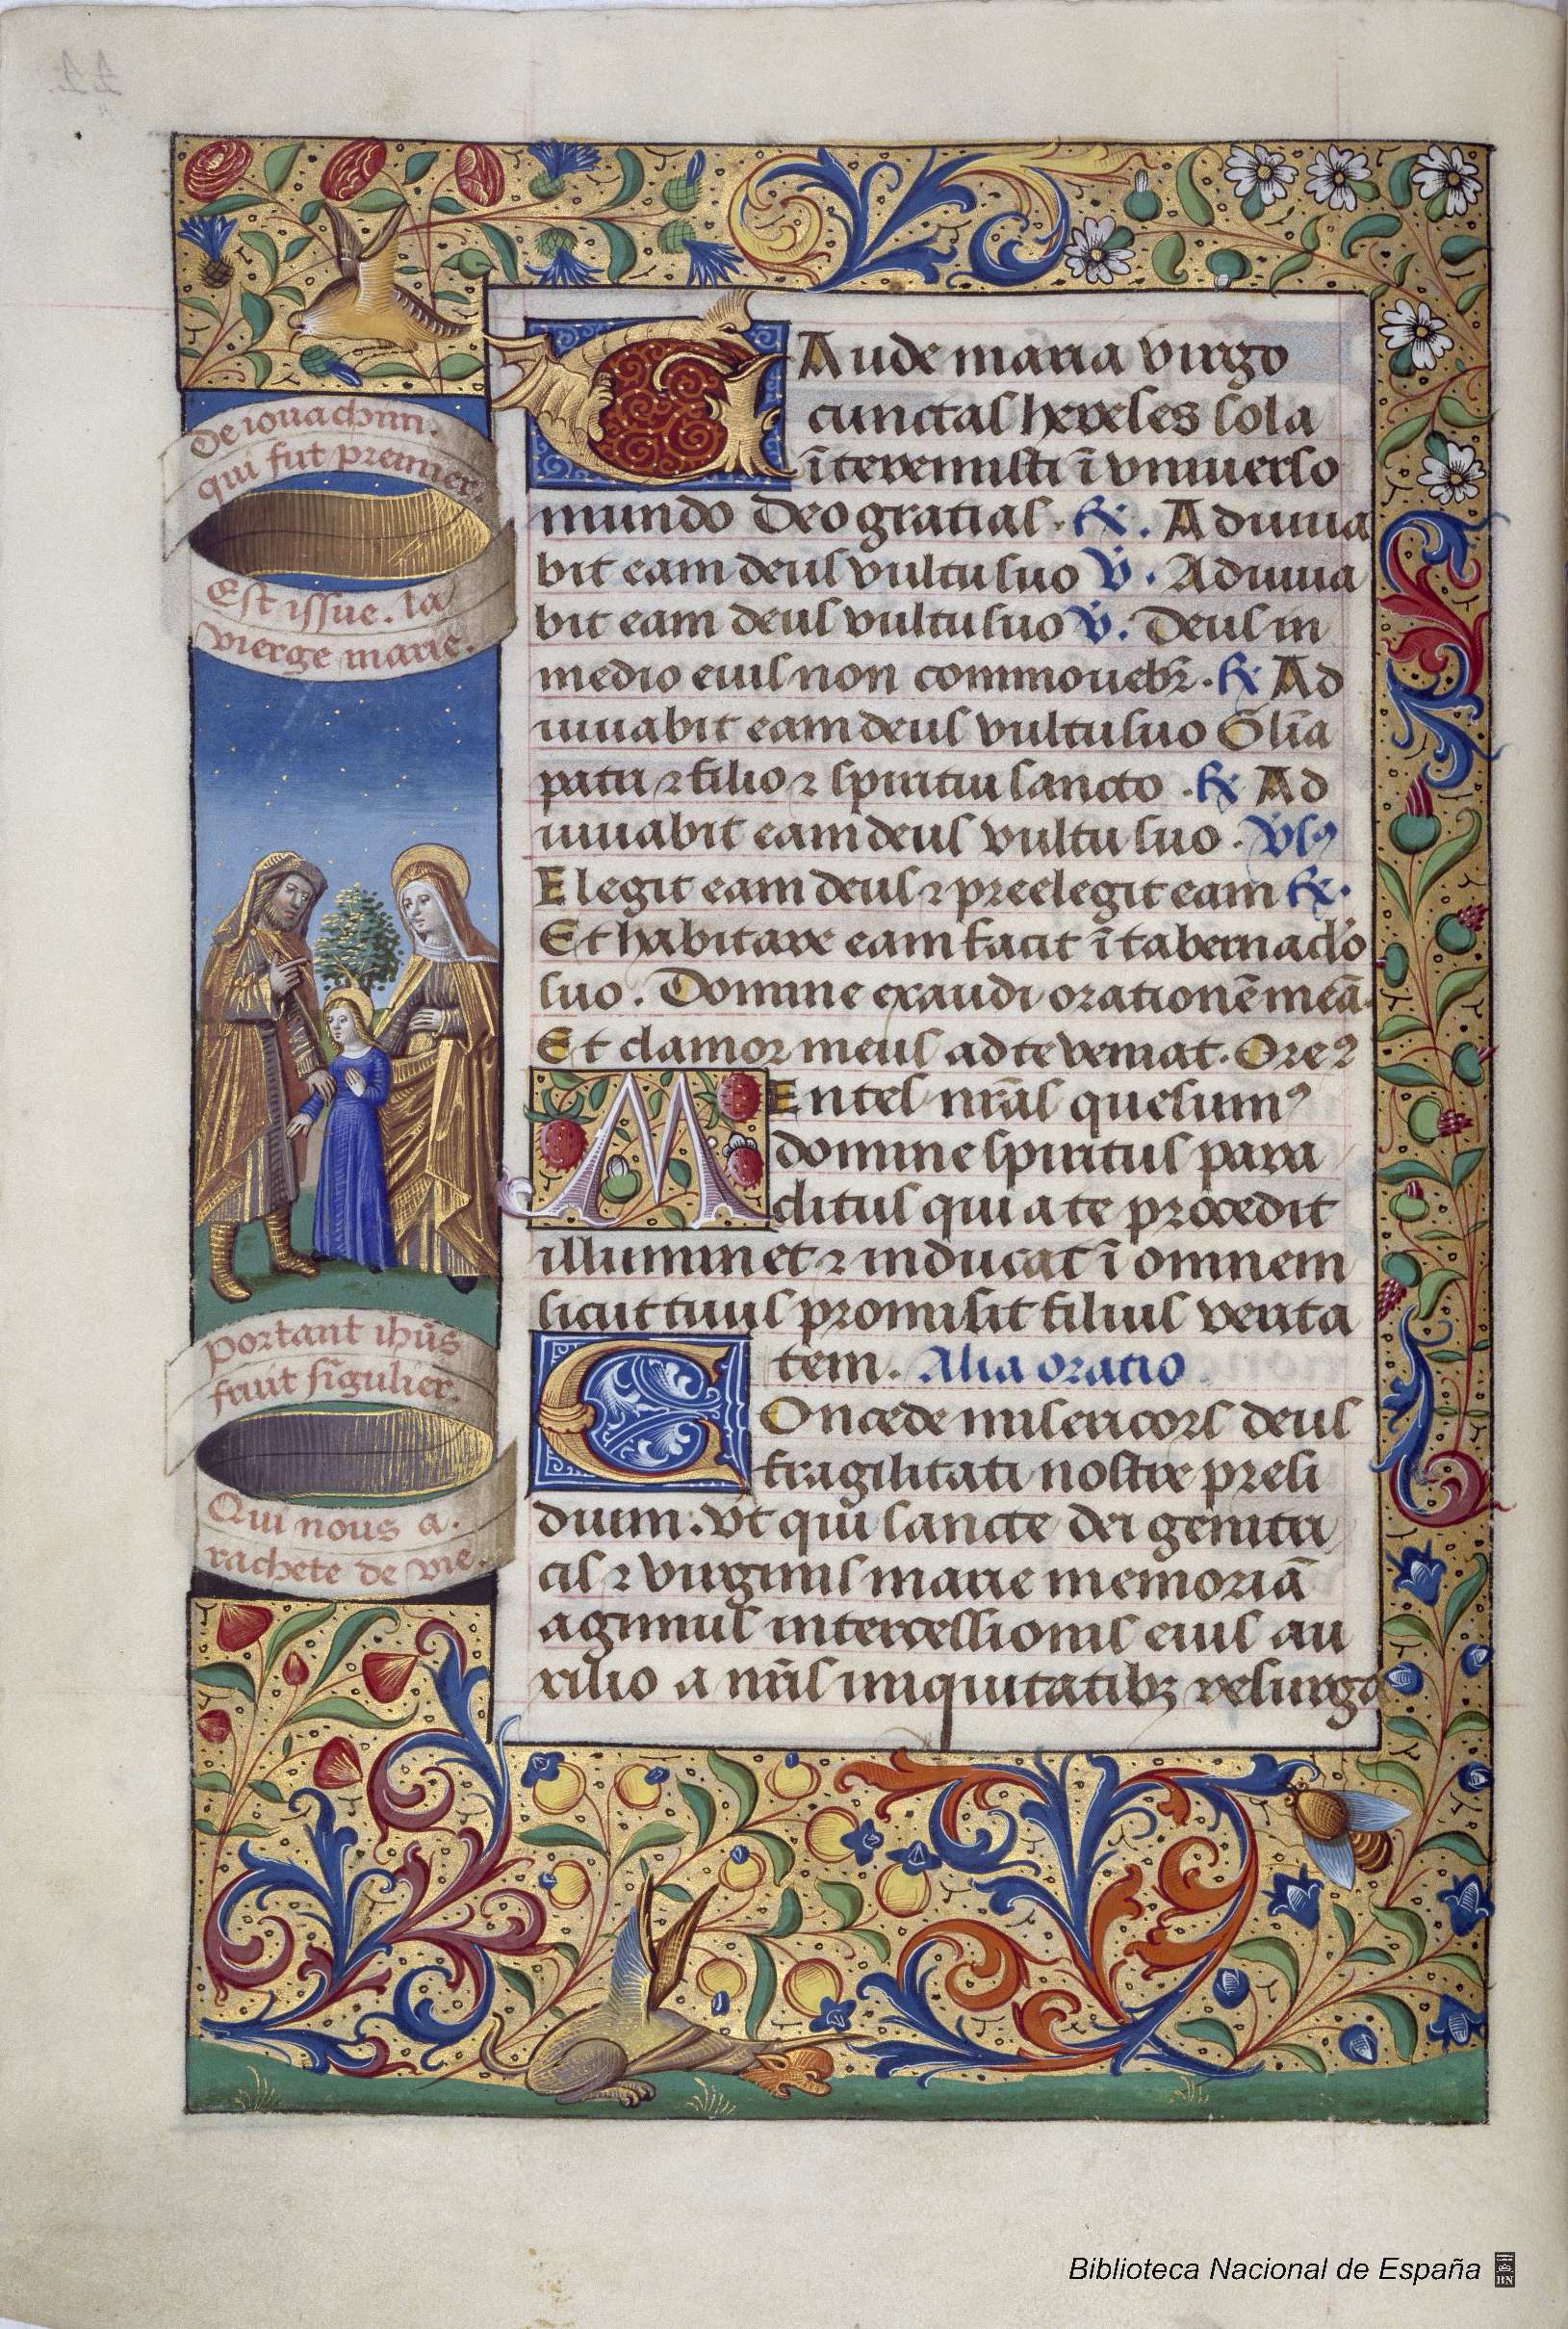 De iouachim.
qui fut premier.
Est issue. la
vierge marie.
portant ihūs
fruit sīgulier.
Qui nous a.
rachete de vie.
GAude maria virgo
cunctas hereses sola
īteremisti ī vniuerso
mundo Deo gratias. ℟. Adiuua
bit eam deus vultu suo ℣. Adiuua
bit eam deus vultu suo ℣. Deus in
medio eius non commouebr̄. ℟ Ad
iuuabit eam deus vultu suo Gl̄ia
patri ⁊ filio ⁊ spiritui sancto. ℟ Ad
iuuabit eam deus vultu suo. Vsꝰ
Elegit eam deus ⁊ preelegit eam ℟.
Et habitare eam facit ī tabernac̄lo
suo. Domine exaudi orationē meā.
Et clamor meus ad te veniat. Oreꝰ
MEntes nr̄as quesumꝰ
domine spiritus para
clitus qui a te procedit
illuminet ⁊ inducat ī omnem
sicut tuus promisit filius verita
tem. Alia oratio
COncede misericors deus
fragilitati nostre presi
dium. vt qui sancte dei genitri
cis ⁊ virginis marie memoriā
agimus intercessionis eius au
xilio a nr̄is iniquitatibꝫ resurga
Biblioteca Nacional de España
BN